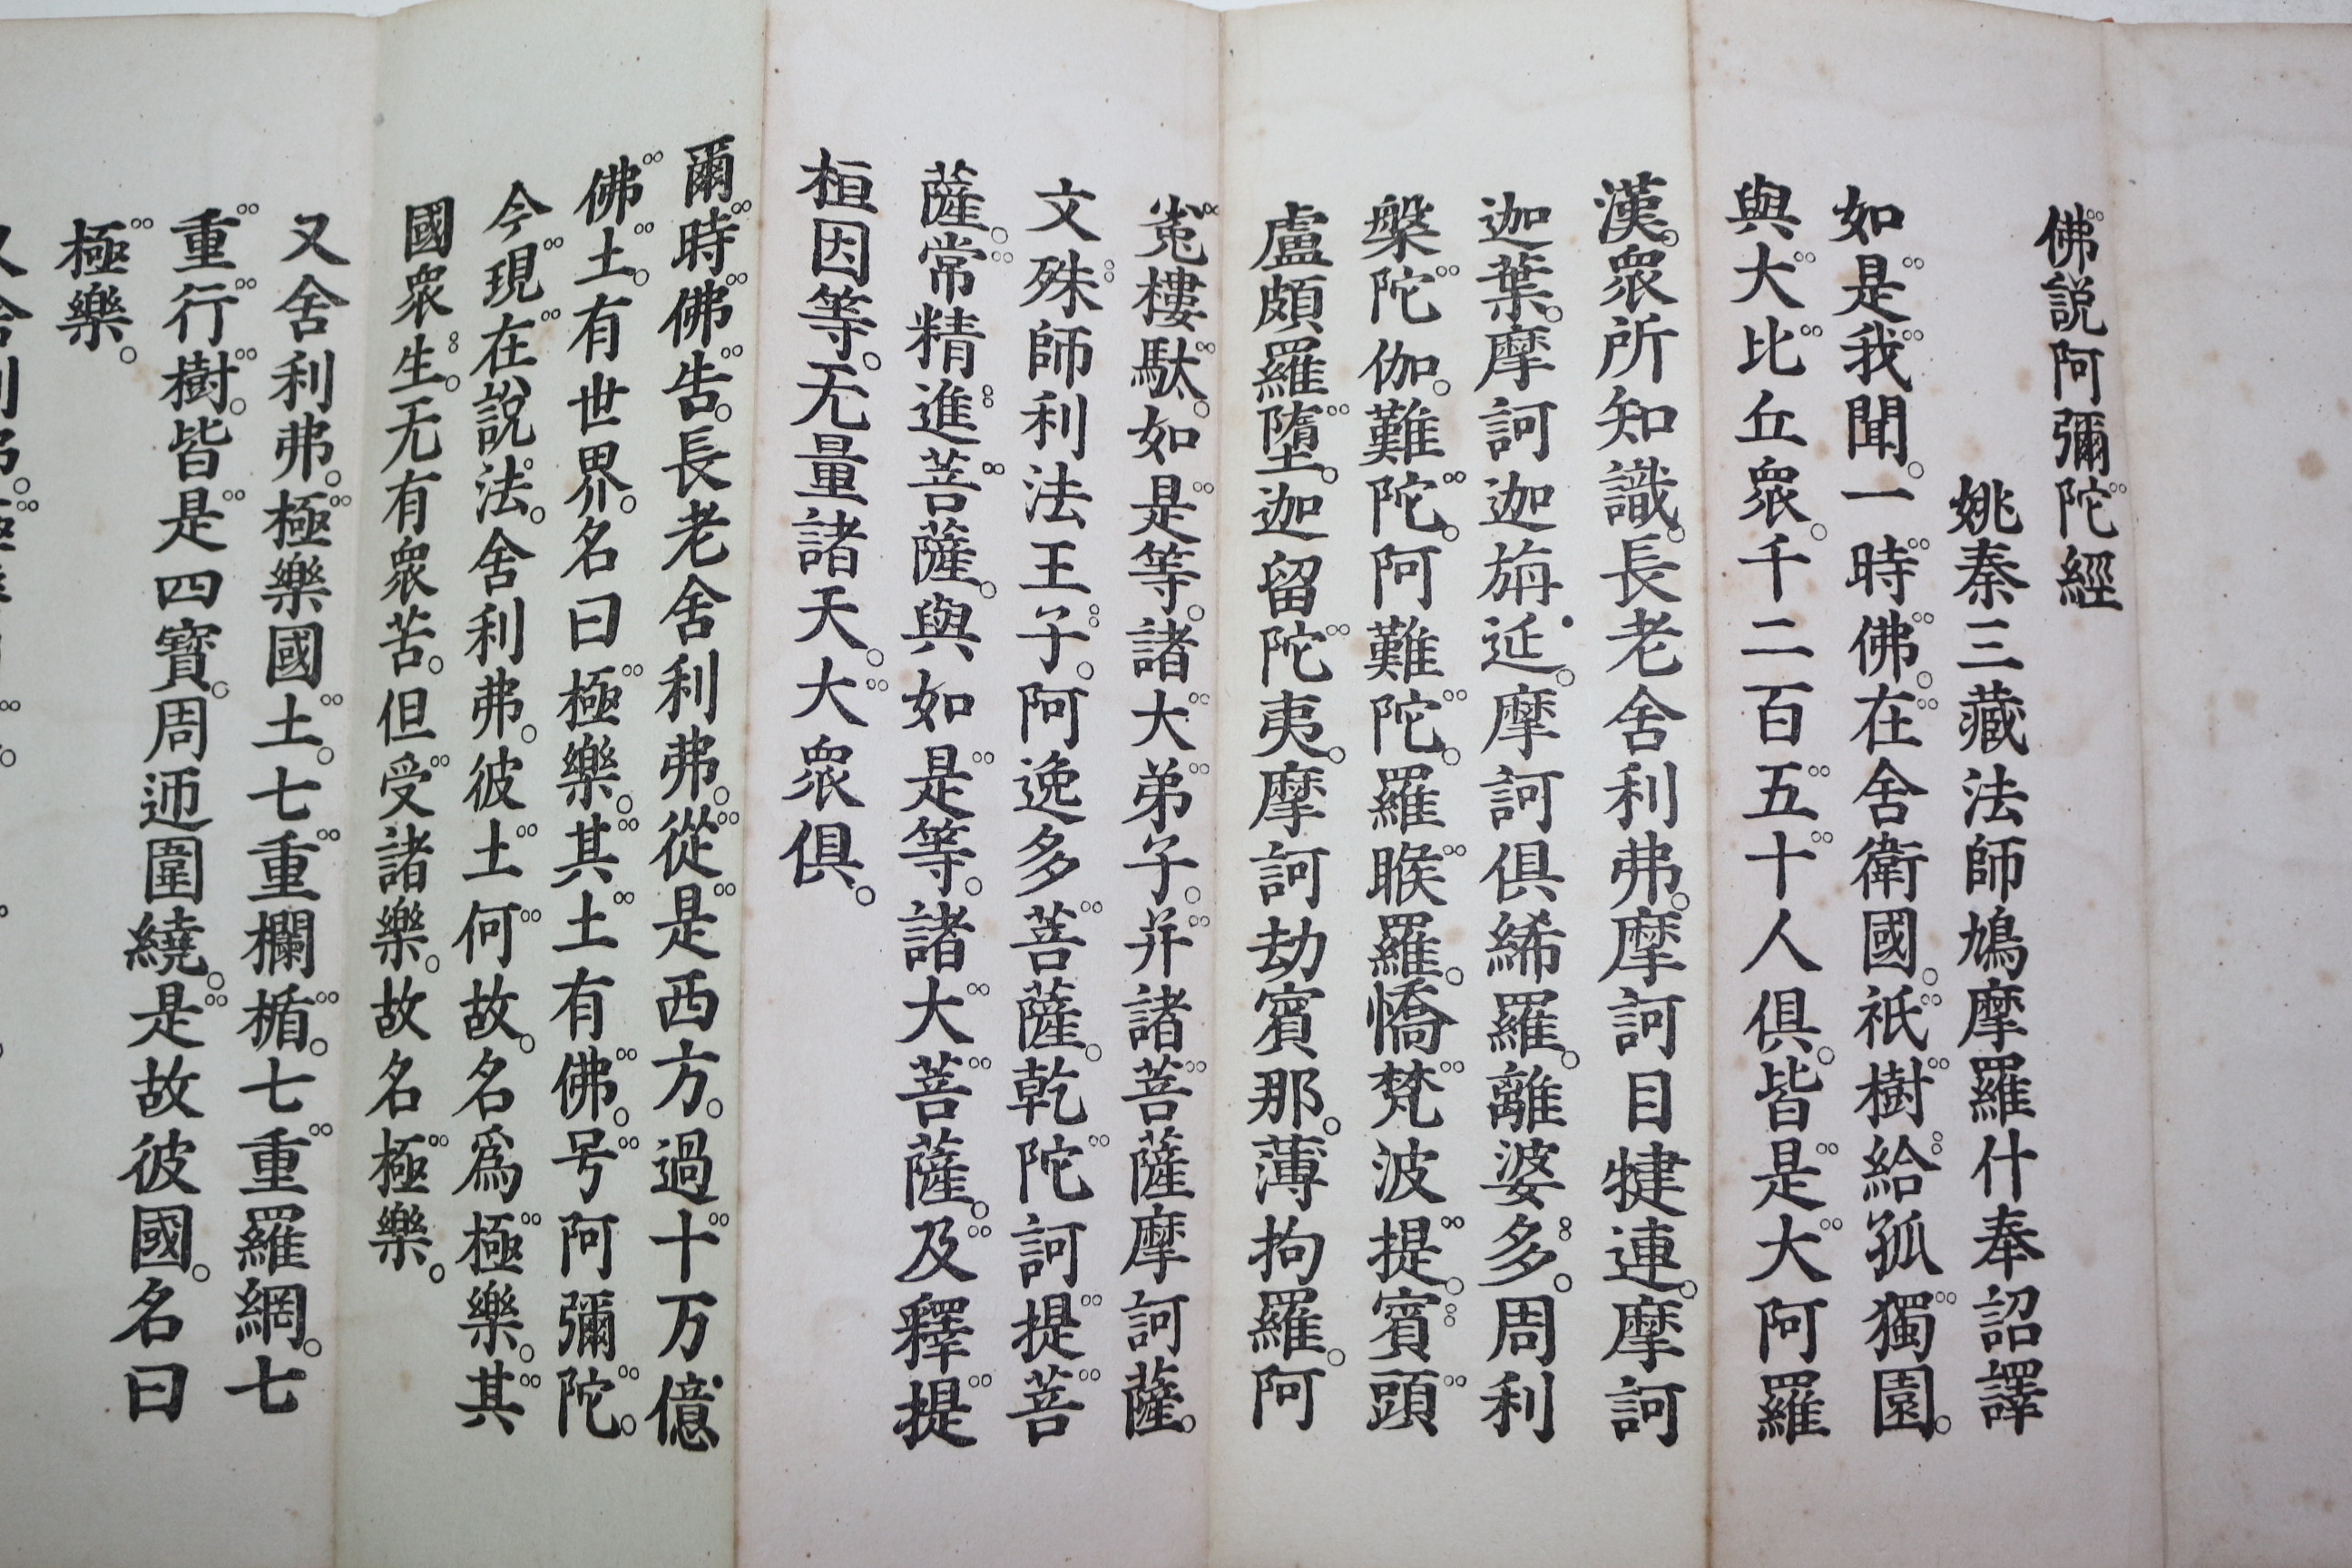 佛説阿彌陀經
姚秦三藏法師鳩摩羅什奉詔譯
如是我聞。一時佛。在舍衛國。祇樹給孤獨園。
與大比丘衆。千二百五十人俱。皆是大阿羅
漢。衆所知識。長老舍利弗。摩訶目犍連。摩訶
迦葉。摩訶迦旃延。摩訶俱絺羅。離婆多。周利
槃陀伽。難陀。阿難陀。羅睺羅。憍梵波提。賓頭
盧頗羅墮。迦留陀夷。摩訶劫賓那。薄拘羅。阿
㝹樓駄。如是等。諸大弟子。并諸菩薩摩訶薩。
文殊師利法王子。阿逸多菩薩。乾陀訶提菩
薩。常精進菩薩。與如是等。諸大菩薩。及釋提
桓因等。无量諸天。大衆俱。
爾時佛告。長老舍利弗。從是西方。過十万億
佛土。有世界。名曰極樂。其土有佛。号阿彌陀。
今現在說法。舍利弗。彼土何故。名爲極樂。其
國衆生。无有衆苦。但受諸樂。故名極樂。
又舍利弗。極樂國土。七重欄楯。七重羅網。七
重行樹。皆是四寶。周迊圍繞。是故彼國。名曰
極樂。